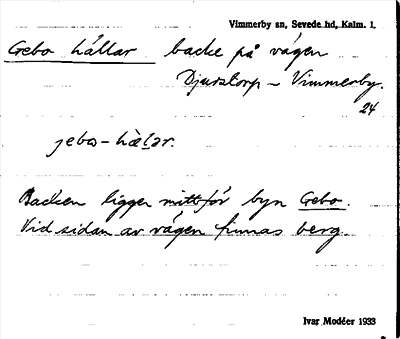 Vimmerby sn, Sevede hd, Kalm. l.
Gebo hällar backe på vägen
Djurstorp – Vimmerby.
24
jebo-hälar.
Backen ligger mittför byn Gebo.
Vid sidan av vägen finnas berg.
Ivar Modéer 1933